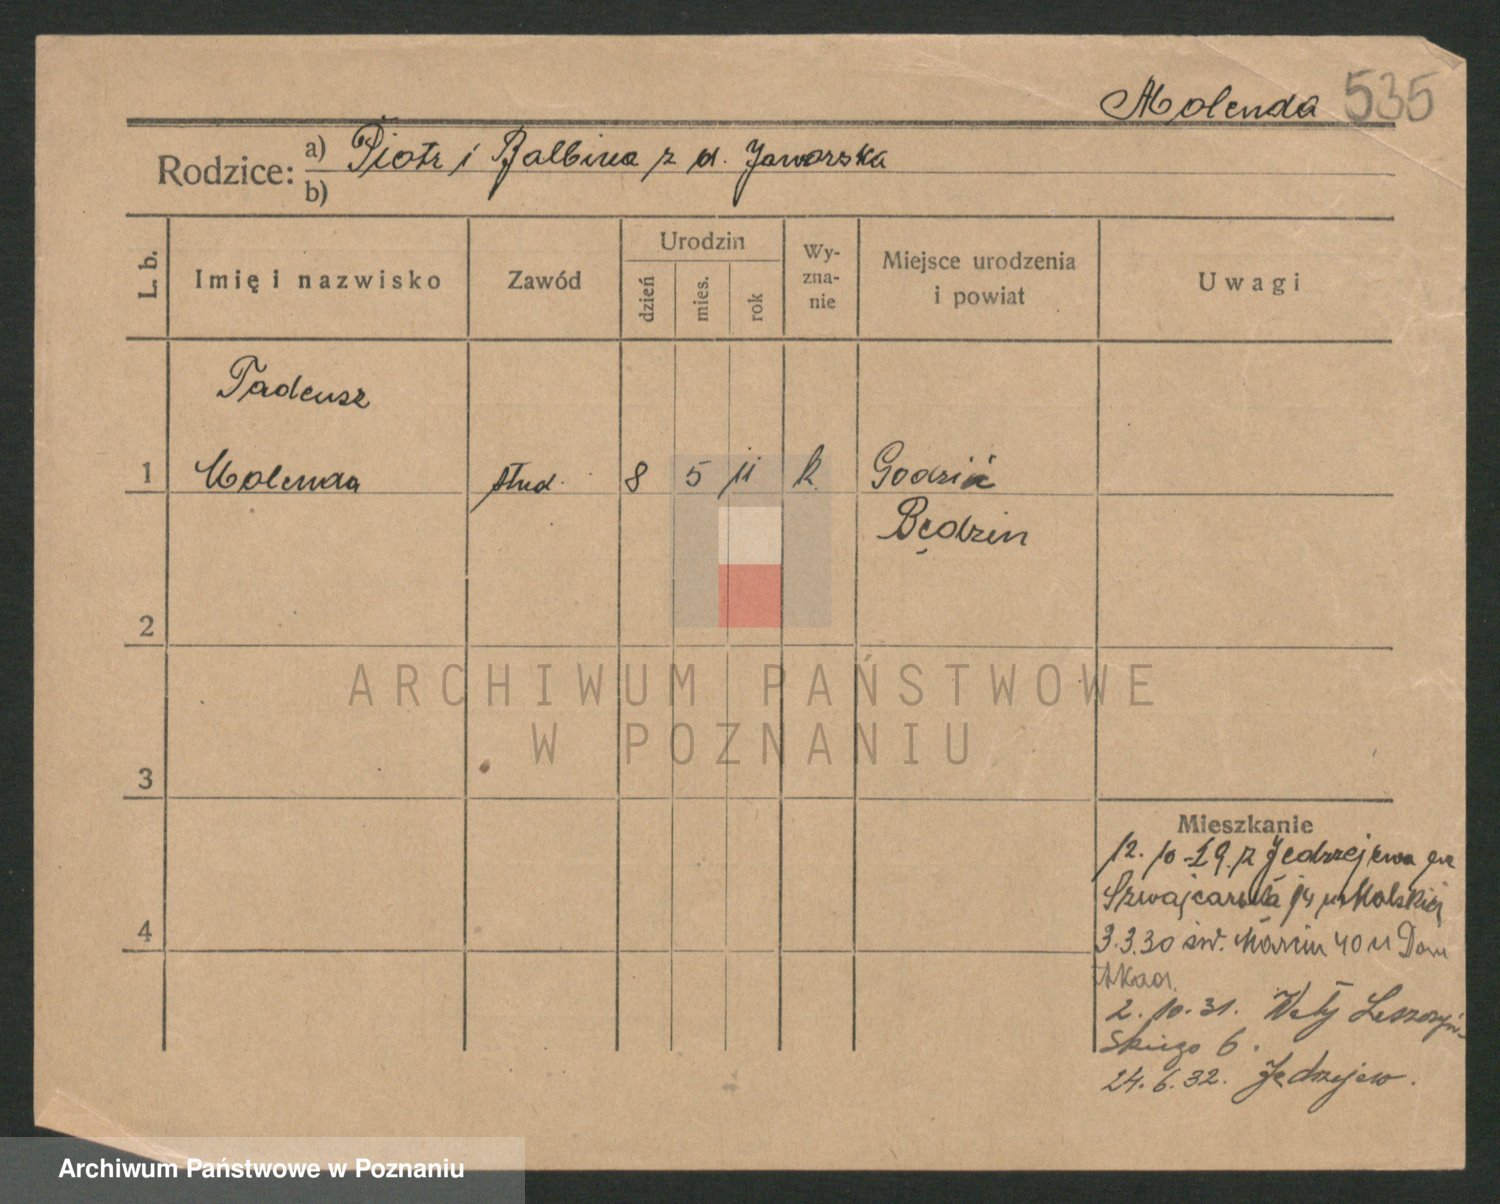 Molenda 535
Rodzice: a) Piotr i Balbina z d. Jaworska
b)
L. b.
Imię i nazwisko
Zawód
Urodzin
dzień
mies.
rok
Wy-
zna-
nie
Miejsce urodzenia
i powiat
Uwagi
Tadeusz
1 Molenda stud. 8 5 11 k.
Będzin
2
ARCHIWUM PAŃSTWOWE
W POZNANIU
3
Mieszkanie
12. 10 29. z Jędrzejewa
Szwajcarska 14 u
4
3.3.30 św. Marcin 40 u Dom
Akad.
2. 10. 31. Wały Leszczyń-
skiego 6.
24. 6. 32. Jędrzejew.
Archiwum Państwowe w Poznaniu